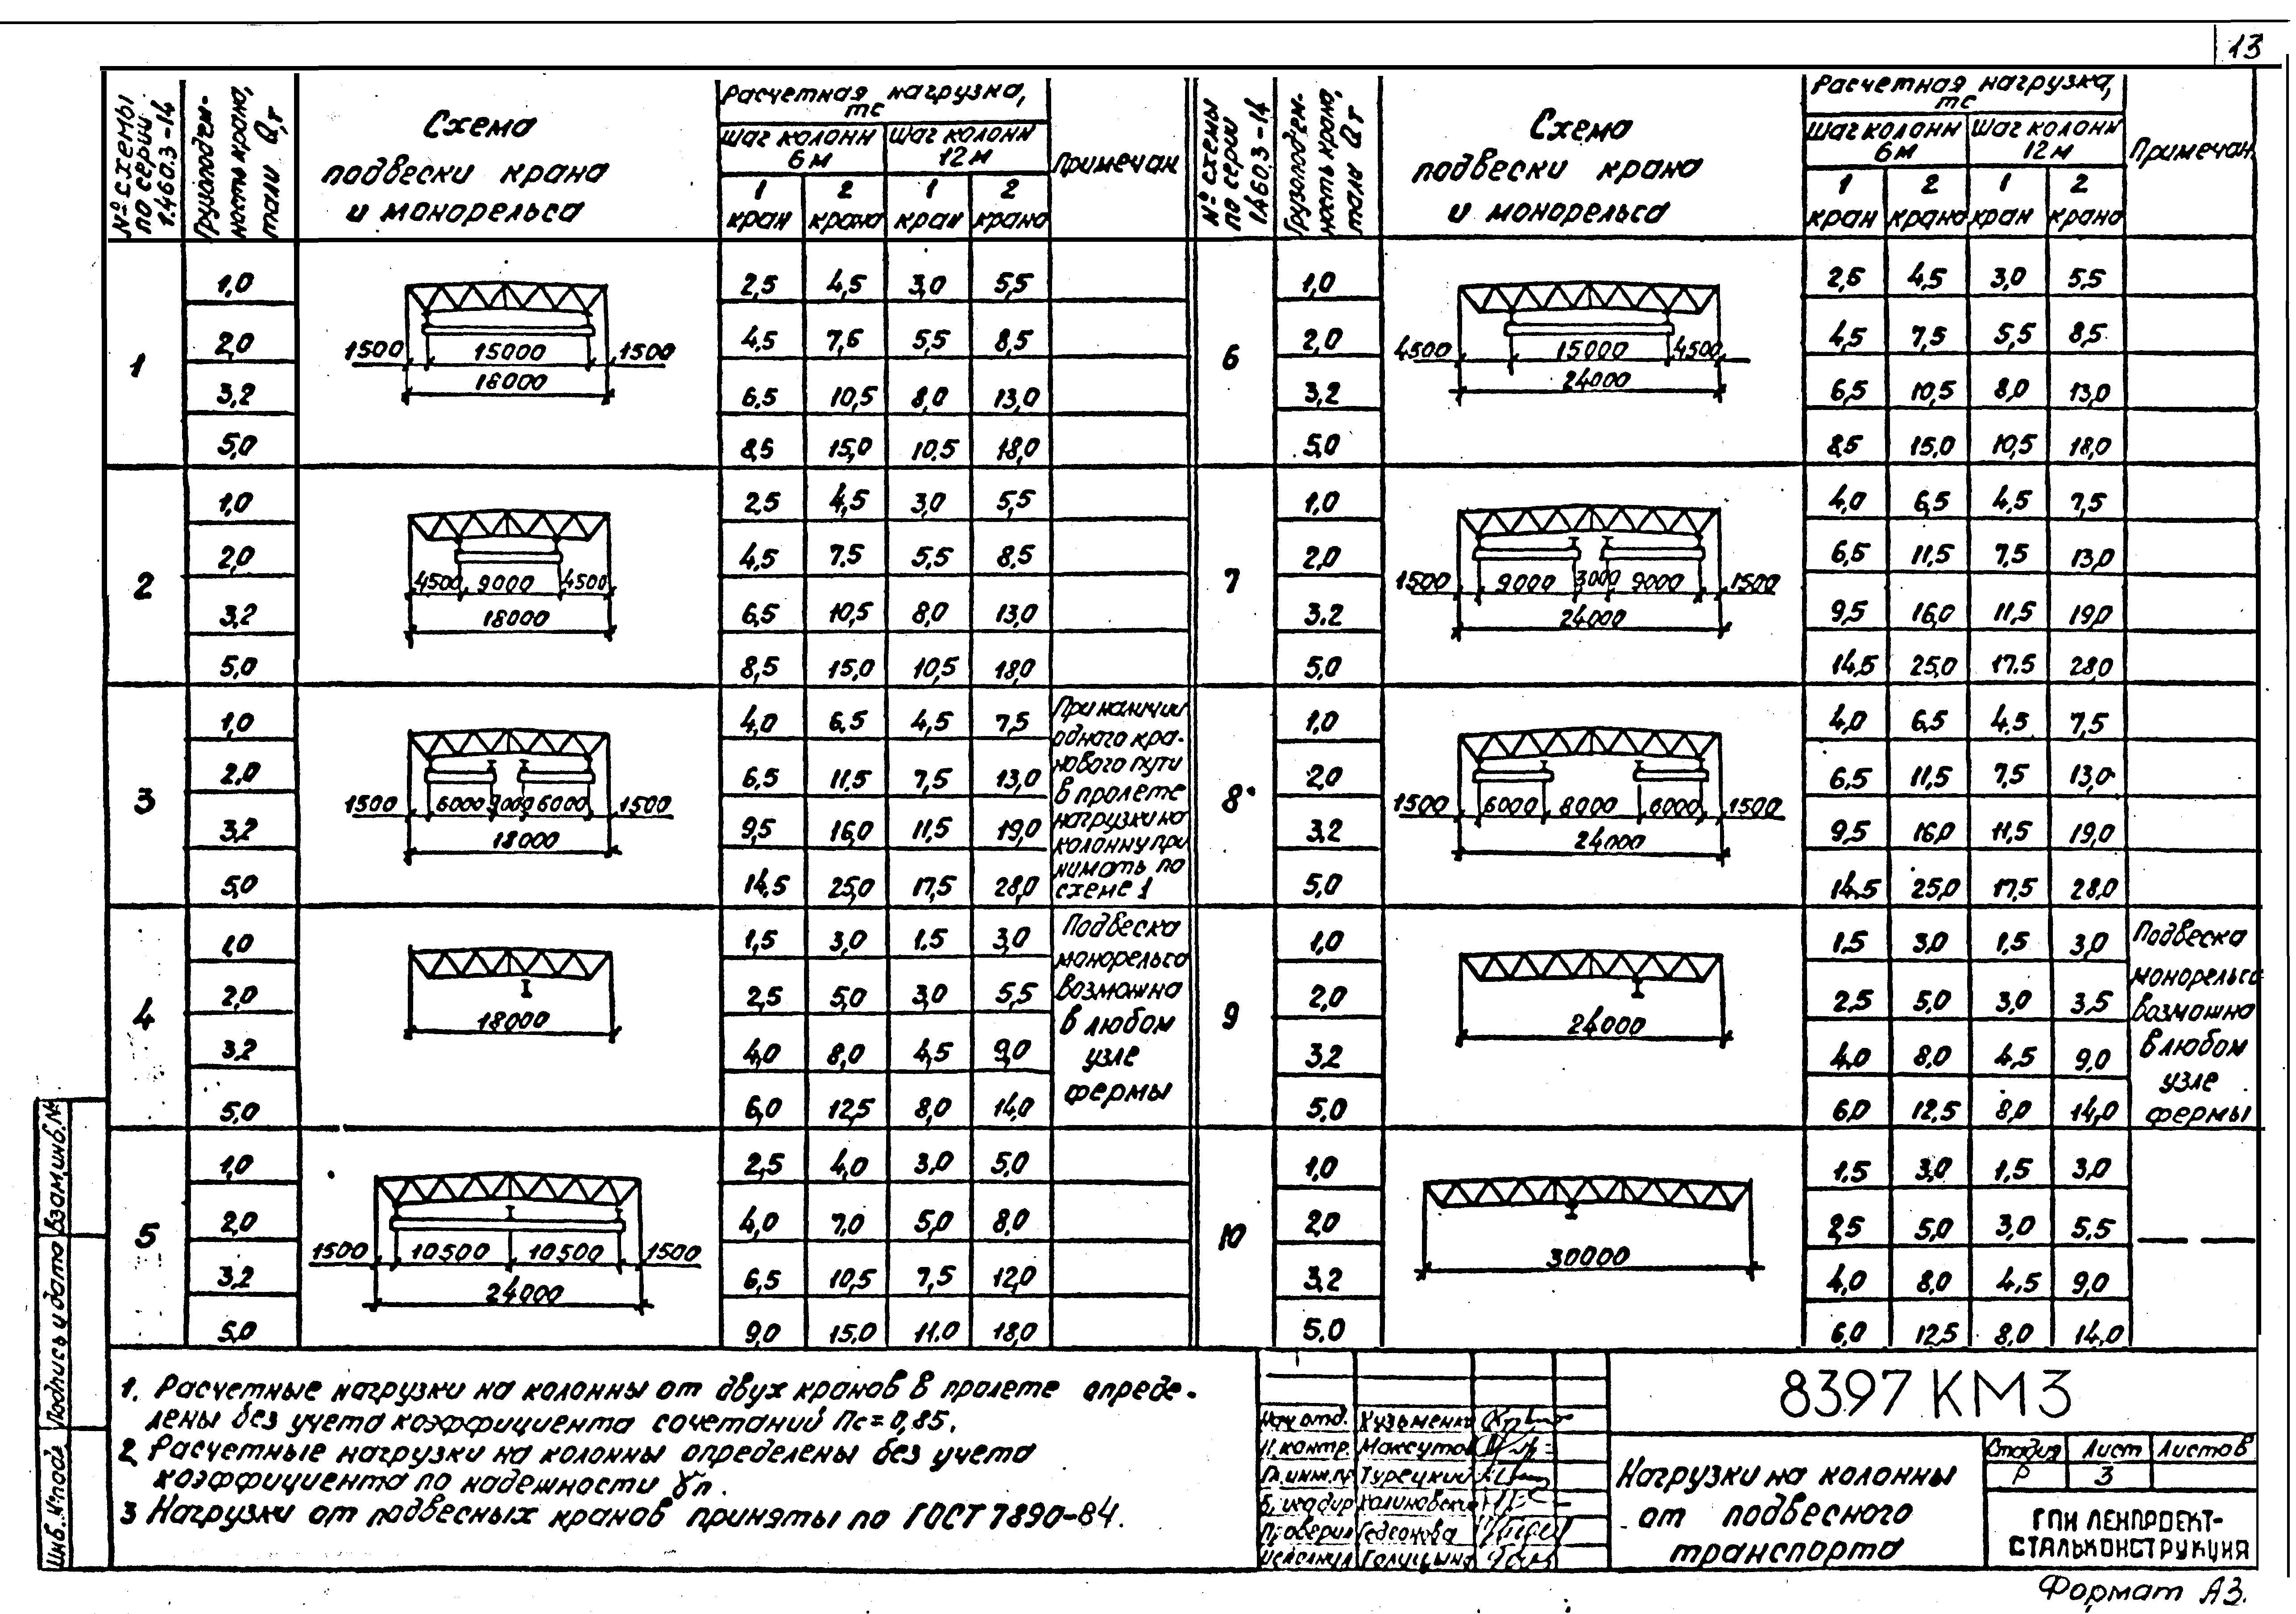 13
№ схемы по серии 1.460.3-14
Грузоподъем-
ность крана,
тали Q,т
Схема
подвески крана
и монорельса
Расчетная нагрузка,
тс
Шаг колонн 6м
Шаг колонн 12м
1 кран
2 крана
1 кран
2 крана
Примечан
1
1,0 2,5 4,5 3,0 5,5
2,0 4,5 7,5 5,5 8,5
3,2 6,5 10,5 8,0 13,0
5,0 8,5 15,0 10,5 18,0
1500 15000 1500
18000
2
1,0 2,5 4,5 3,0 5,5
2,0 4,5 7,5 5,5 8,5
3,2 6,5 10,5 8,0 13,0
5,0 8,5 15,0 10,5 18,0
4500 9000 4500
18000
3
1,0 4,0 6,5 4,5 7,5
2,0 6,5 11,5 7,5 13,0
3,2 9,5 16,0 11,5 19,0
5,0 14,5 25,0 17,5 28,0
1500 6000 3000 6000 1500
18000
При наличии
одного кра-
нового пути
в пролете
нагрузки на
колонну при
нимать по
схеме 1
4
1,0 1,5 3,0 1,5 3,0
2,0 2,5 5,0 3,0 5,5
3,2 4,0 8,0 4,5 9,0
5,0 6,0 12,5 8,0 14,0
18000
Подвеска
монорельса
возможна
в любом
узле
фермы
5
1,0 2,5 4,0 3,0 5,0
2,0 4,0 7,0 5,0 8,0
3,2 6,5 10,5 7,5 12,0
5,0 9,0 15,0 11,0 18,0
1500 10500 10500 1500
24000
№ схемы по серии 1.460.3-14
Грузоподъем-
ность крана,
тали Q т
Схема
подвески крана
и монорельса
Расчетная нагрузка,
тс
Шаг колонн 6м
Шаг колонн 12м
1 кран
2 крана
1 кран
2 крана
Примечан
6
1,0 2,5 4,5 3,0 5,5
2,0 4,5 7,5 5,5 8,5
3,2 6,5 10,5 8,0 13,0
5,0 8,5 15,0 10,5 18,0
4500 15000 4500
24000
7
1,0 4,0 6,5 4,5 7,5
2,0 6,5 11,5 7,5 13,0
3.2 9,5 16,0 11,5 19,0
5,0 14,5 25,0 17,5 28,0
1500 9000 3000 9000 1500
24000
8
1,0 4,0 6,5 4,5 7,5
2,0 6,5 11,5 7,5 13,0
3,2 9,5 16,0 11,5 19,0
5,0 14,5 25,0 17,5 28,0
1500 6000 8000 6000 1500
24000
9
1,0 1,5 3,0 1,5 3,0
2,0 2,5 5,0 3,0 3,5
3,2 4,0 8,0 4,5 9,0
5,0 6,0 12,5 8,0 14,0
24000
Подвеска
монорельса
возможна
в любом
узле
фермы
10
1,0 1,5 3,0 1,5 3,0
2,0 2,5 5,0 3,0 5,5
3,2 4,0 8,0 4,5 9,0
5,0 6,0 12,5 8,0 14,0
30000
— —
1. Расчетные нагрузки на колонны от двух кранов в пролете опреде-
лены без учета коэффициента сочетаний nс=0,85.
2 Расчетные нагрузки на колонны определены без учета
коэффициента по надежности γn.
3 Нагрузки от подвесных кранов приняты по ГОСТ 7890-84.
Инв. № подл Подпись и дата Взам.инв.№
Нач отд. Кузьменко
Н. контр. Максутов
Гл.инж.пр Турецкий
Проверил Гедеонова
Исполнил Голицына
8397 КМ3
Нагрузки на колонны
от подвесного
транспорта
Стадия Лист Листов
Р 3
ГПИ ЛЕНПРОЕКТ-
СТАЛЬКОНСТРУКЦИЯ
Формат А3.